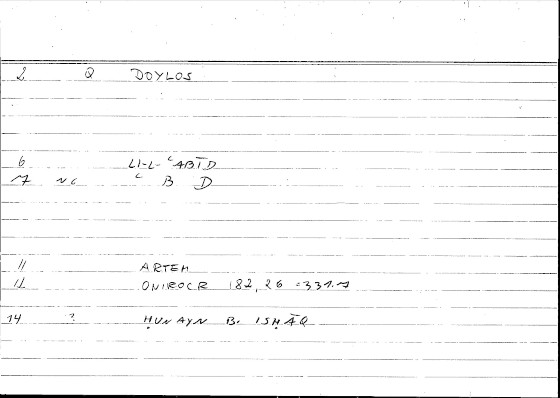 2 Q DOYLOS
6 LI-L-ʿABĪD
7 NC ʿ B D
11 ARTEM
12 ONIROCR 182, 26 = 331.7
14 ? ḤUNAYN B. ISḤĀQ